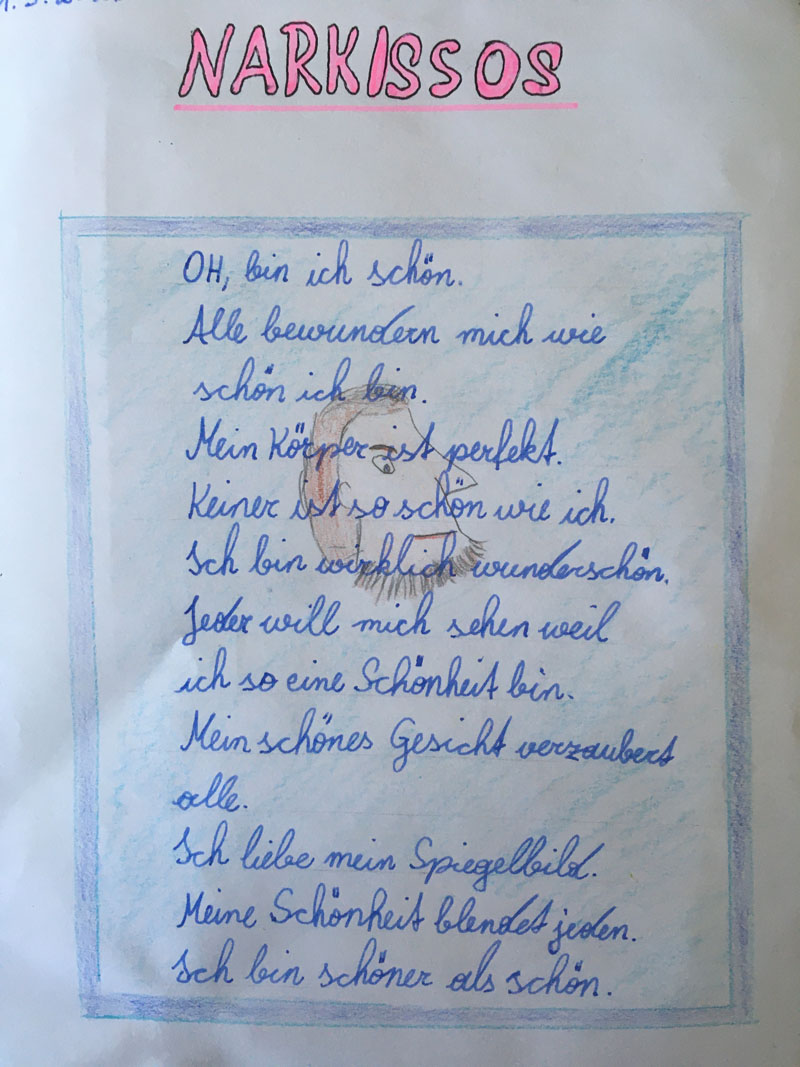 NARKISSOS
OH, bin ich schön.
Alle bewundern mich wie
schön ich bin.
Mein Körper ist perfekt.
Keiner ist so schön wie ich.
Ich bin wirklich wunderschön.
Jeder will mich sehen weil
ich so eine Schönheit bin.
Mein schönes Gesicht verzaubert
alle.
Ich liebe mein Spiegelbild.
Meine Schönheit blendet jeden.
Ich bin schöner als schön.